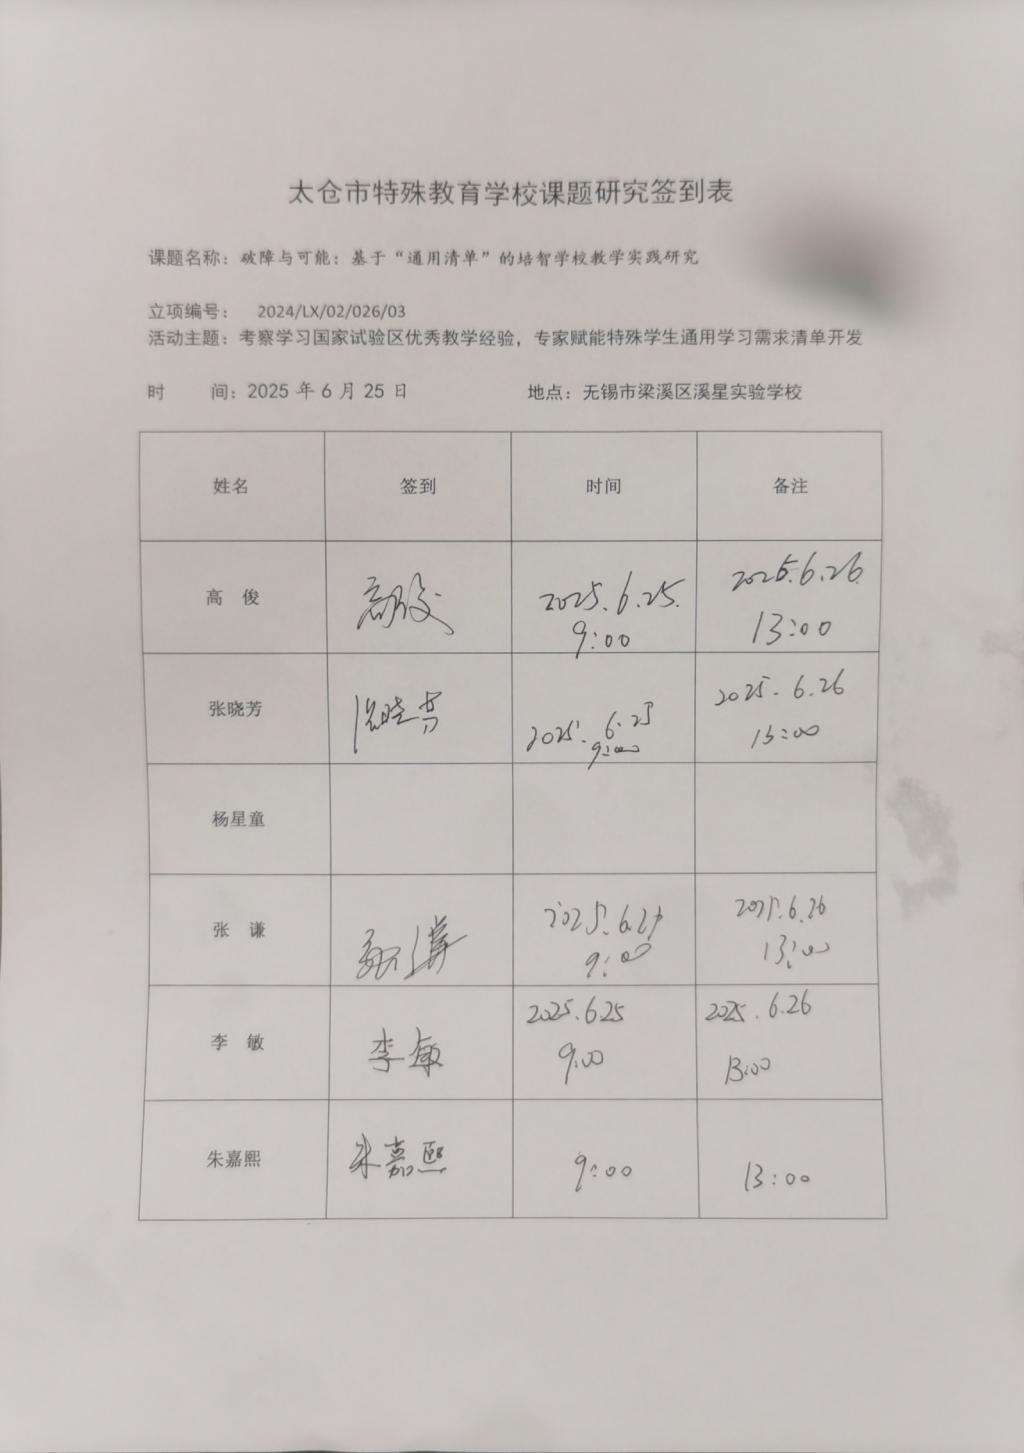 太仓市特殊教育学校课题研究签到表
课题名称：破障与可能：基于“通用清单”的培智学校教学实践研究
立项编号： 2024/LX/02/026/03
活动主题：考察学习国家试验区优秀教学经验，专家赋能特殊学生通用学习需求清单开发
时 间：2025 年 6 月 25 日 地点：无锡市梁溪区溪星实验学校
姓名 签到 时间 备注
高 俊 高俊 2025.6.25. 2025.6.26.
9:00 13:00
张晓芳 张晓芳 2025.6.25 2025.6.26
9:00 13:00
杨星童
张 谦 张谦 2025.6.25 2025.6.26
9:00 13:00
李 敏 李敏 2025.625 2025.6.26
9:00 13:00
朱嘉熙 朱嘉熙 9:00 13:00